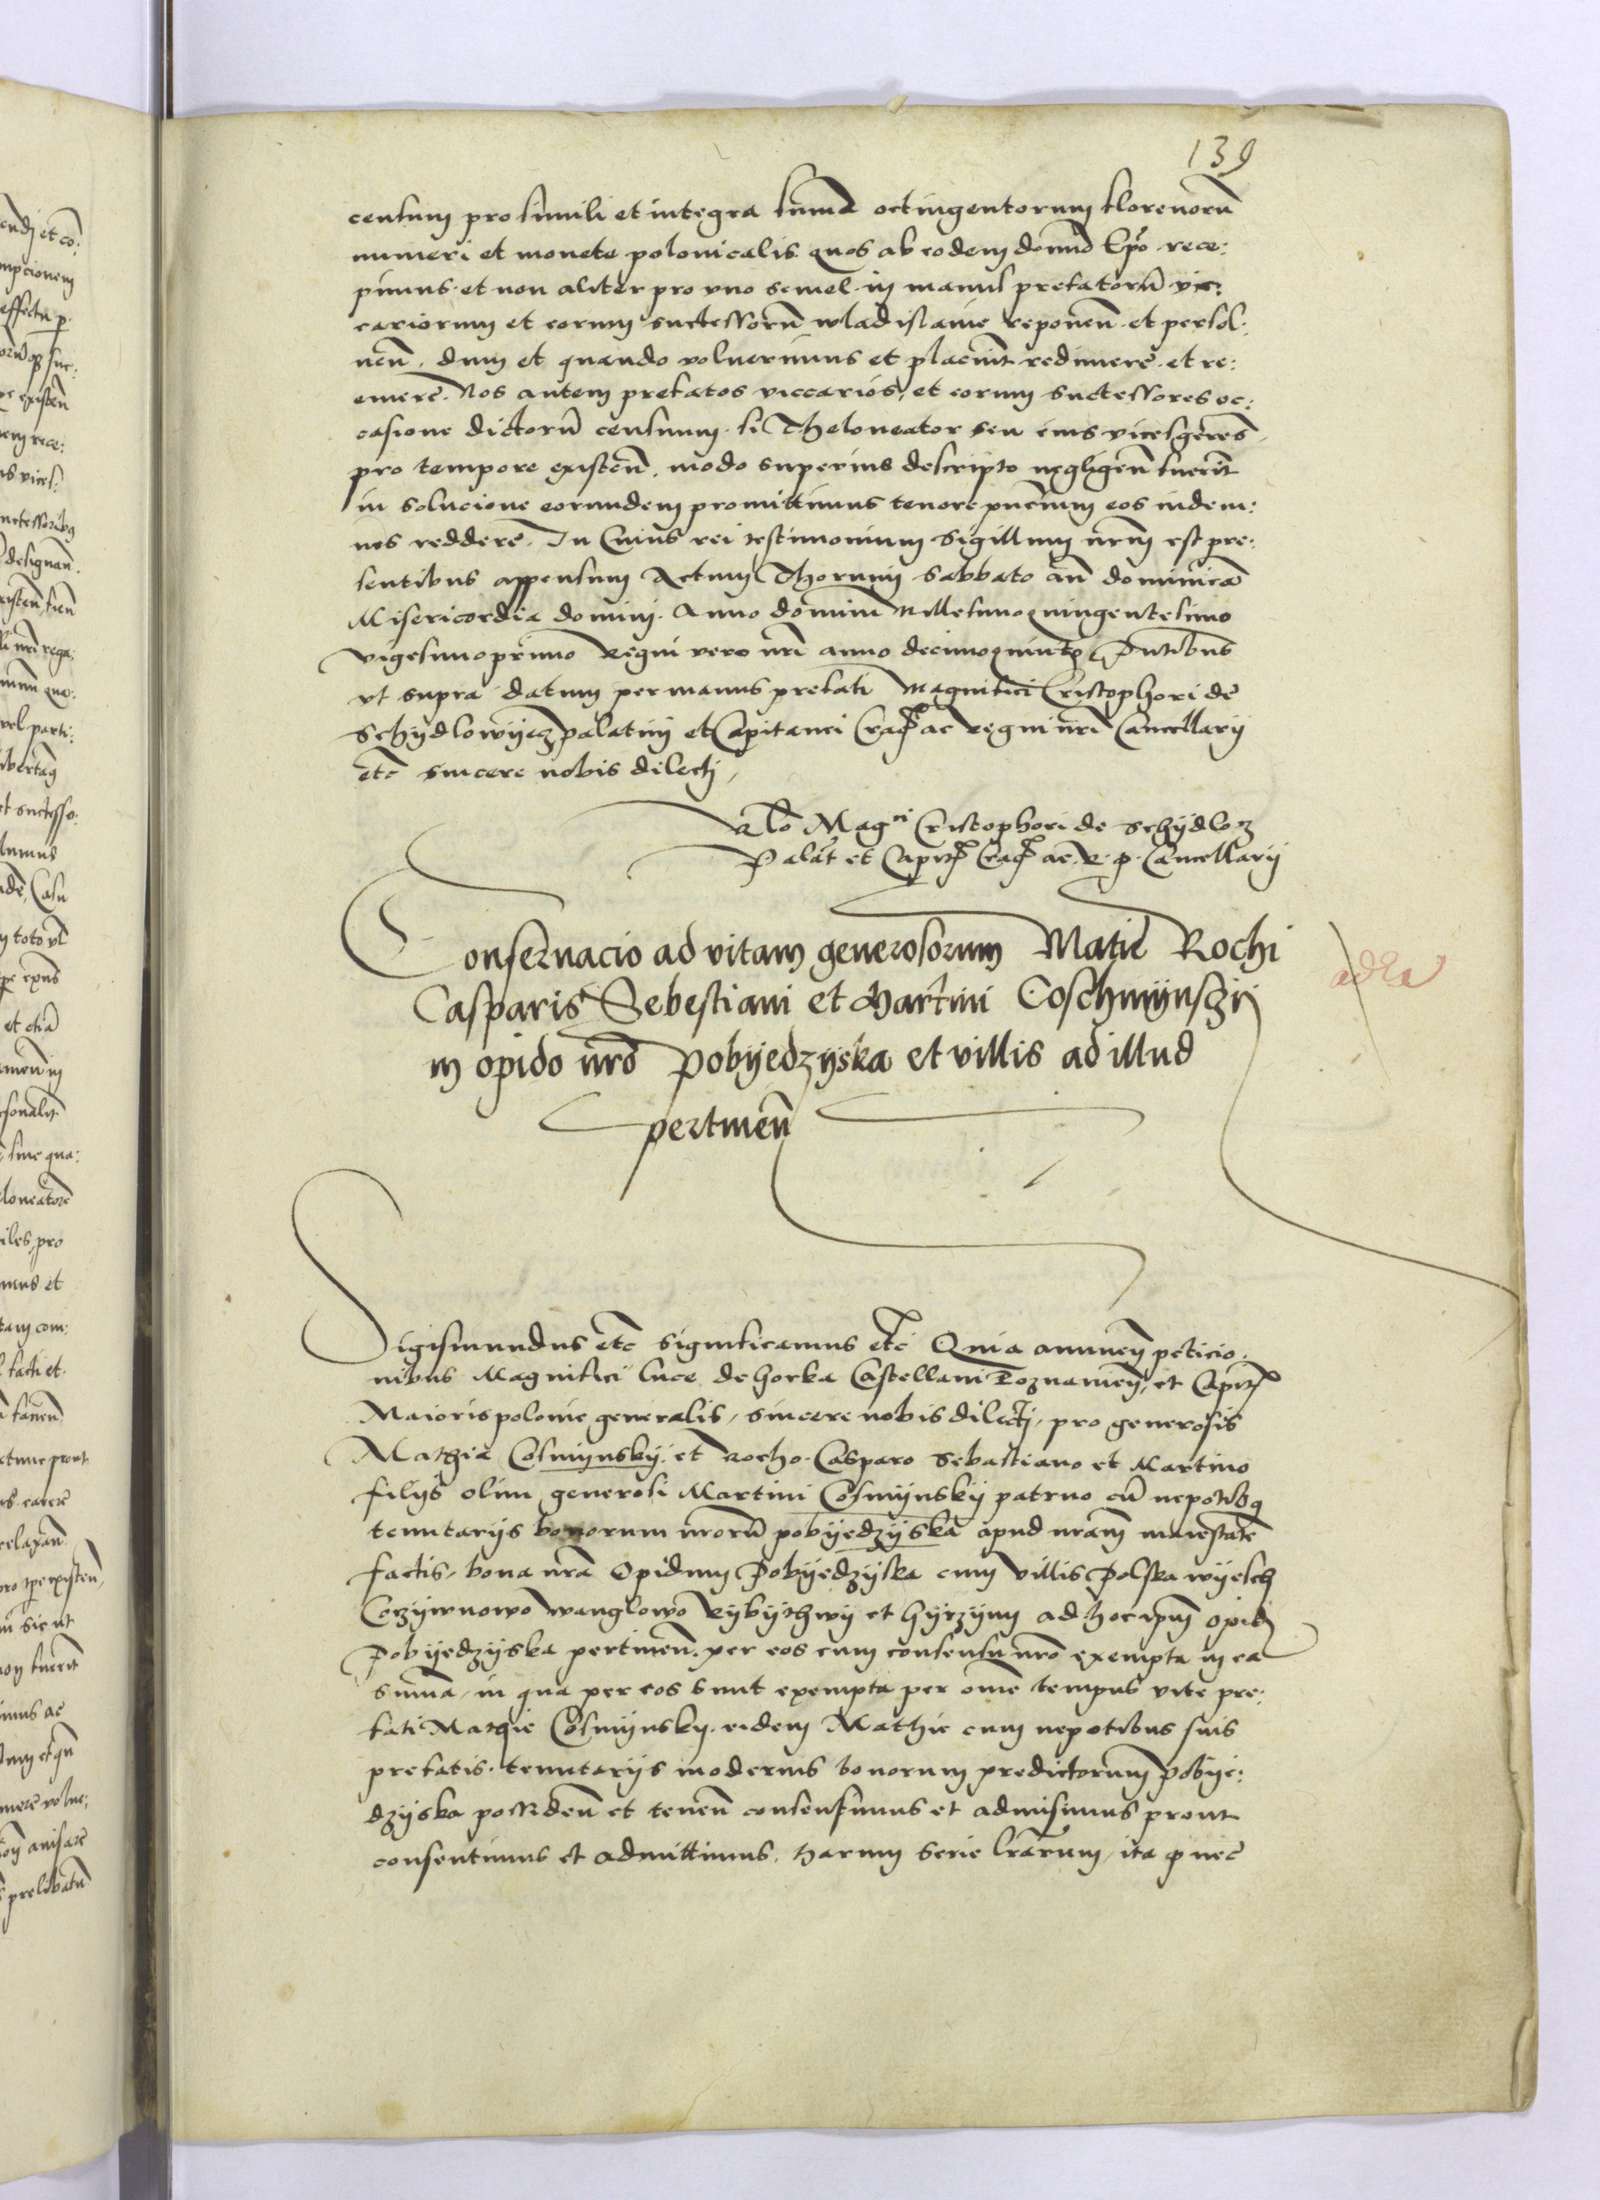 139
censum pro simili et integra sum̃a octingentorum florenorũ
numeri et monete polonicalis quos ab eodem domno Ep̃o rece:
pimus. et non aliter pro vno semel in manus prefatorũ vic:
cariorum et eorum successorũ wladislavie reponeñ et persol:
veñ. dum et quando voluerimus et placuerit redimere et re:
emere. Nos autem prefatos viccarios, et eorum successores oc:
casione dictorũ censuum. si Theloneator seu eius vicesgereñs
pro tempore existeñ. modo superius descripto negligeñ fuerit
in solucione eorundem promittimus tenore p̃ncium eos indem:
nes reddere. In Cuius rei testimonium sigillum nr̃m est pre:
sentibus appensum Actum Thorunij sabbato añ dominicã
Misericordia domini. Anno domini Millesimoquingentesimo
vigesimoprimo Regni vero nr̃i anno decimoquinto P̃ntibus
vt supra datum per manus prefati Magnifici Cristophori de
Schydlowyecz palatini et Capitanei Crac̃ ac regni nr̃i Cancellarij
etc̃ sincere nobis dilecti,
R̃lo Mag^ci Cristophori de Schydlo^z
Palat̃ et Capit̃ Crac̃ ac. R. p. Cancellarij
Conservacio ad vitam generosorum Matie Rochi
Casparis Sebestiani et Martini Coschmynszkij
in opido nr̃o Pobyedzyska et villis ad illud
pertineñ
Sigismundus etc̃ significamus etc̃ Quia annueñ peticio.
nibus Magnifici Luce de Gorka Castellani Poznanieñ, et Capit̃
Maiorispolonie generalis, sincere nobis dilecti, pro generosis
Mathia Cosmynsky. et Rocho. Casparo Sebastiano et Martino
filijs olim generosi Martini Cosmynsky patruo cũ nepotibq
tenutarijs bonorum nr̃orũ pobyedzyska apud nr̃am maiestatẽ
factis, bona nr̃a Opidum Pobyedzyska cum villis Polska wyesch
Corzywnowo wanglowo Rybythwy et Gyrzyny ad hoc ipm̃ opid̃
Pobyedzyska pertineñ. per eos cum consensu nr̃o exempta in ea
summa, in qua per eos sunt exempta per om̃e tempus vite pre:
fati Mathie Cosmynsky. eidem Mathie cum nepotibus suis
prefatis. tenutarijs modernis bonorum predictorum Pobye:
dzyska possideñ et teneñ consensimus et admisimus prout
consentimus et admittimus. harum serie lr̃arum, ita q̃ nec̃